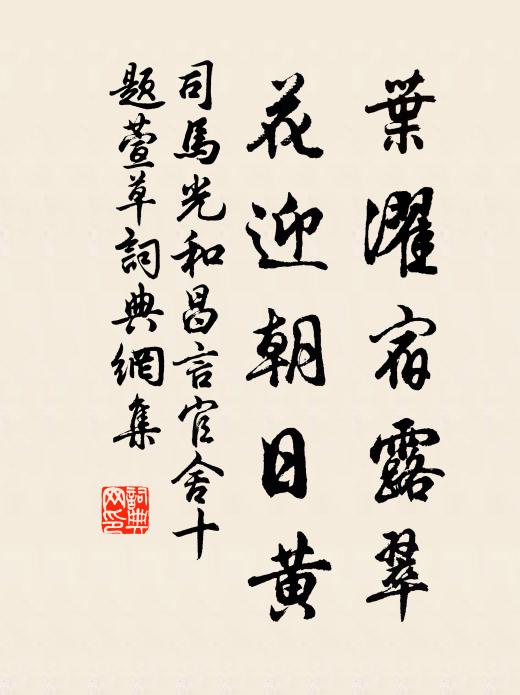 葉濯宿露翠
花迎朝日黄
司馬光和昌言官舍十
題萱草詞典網集
詞典网印